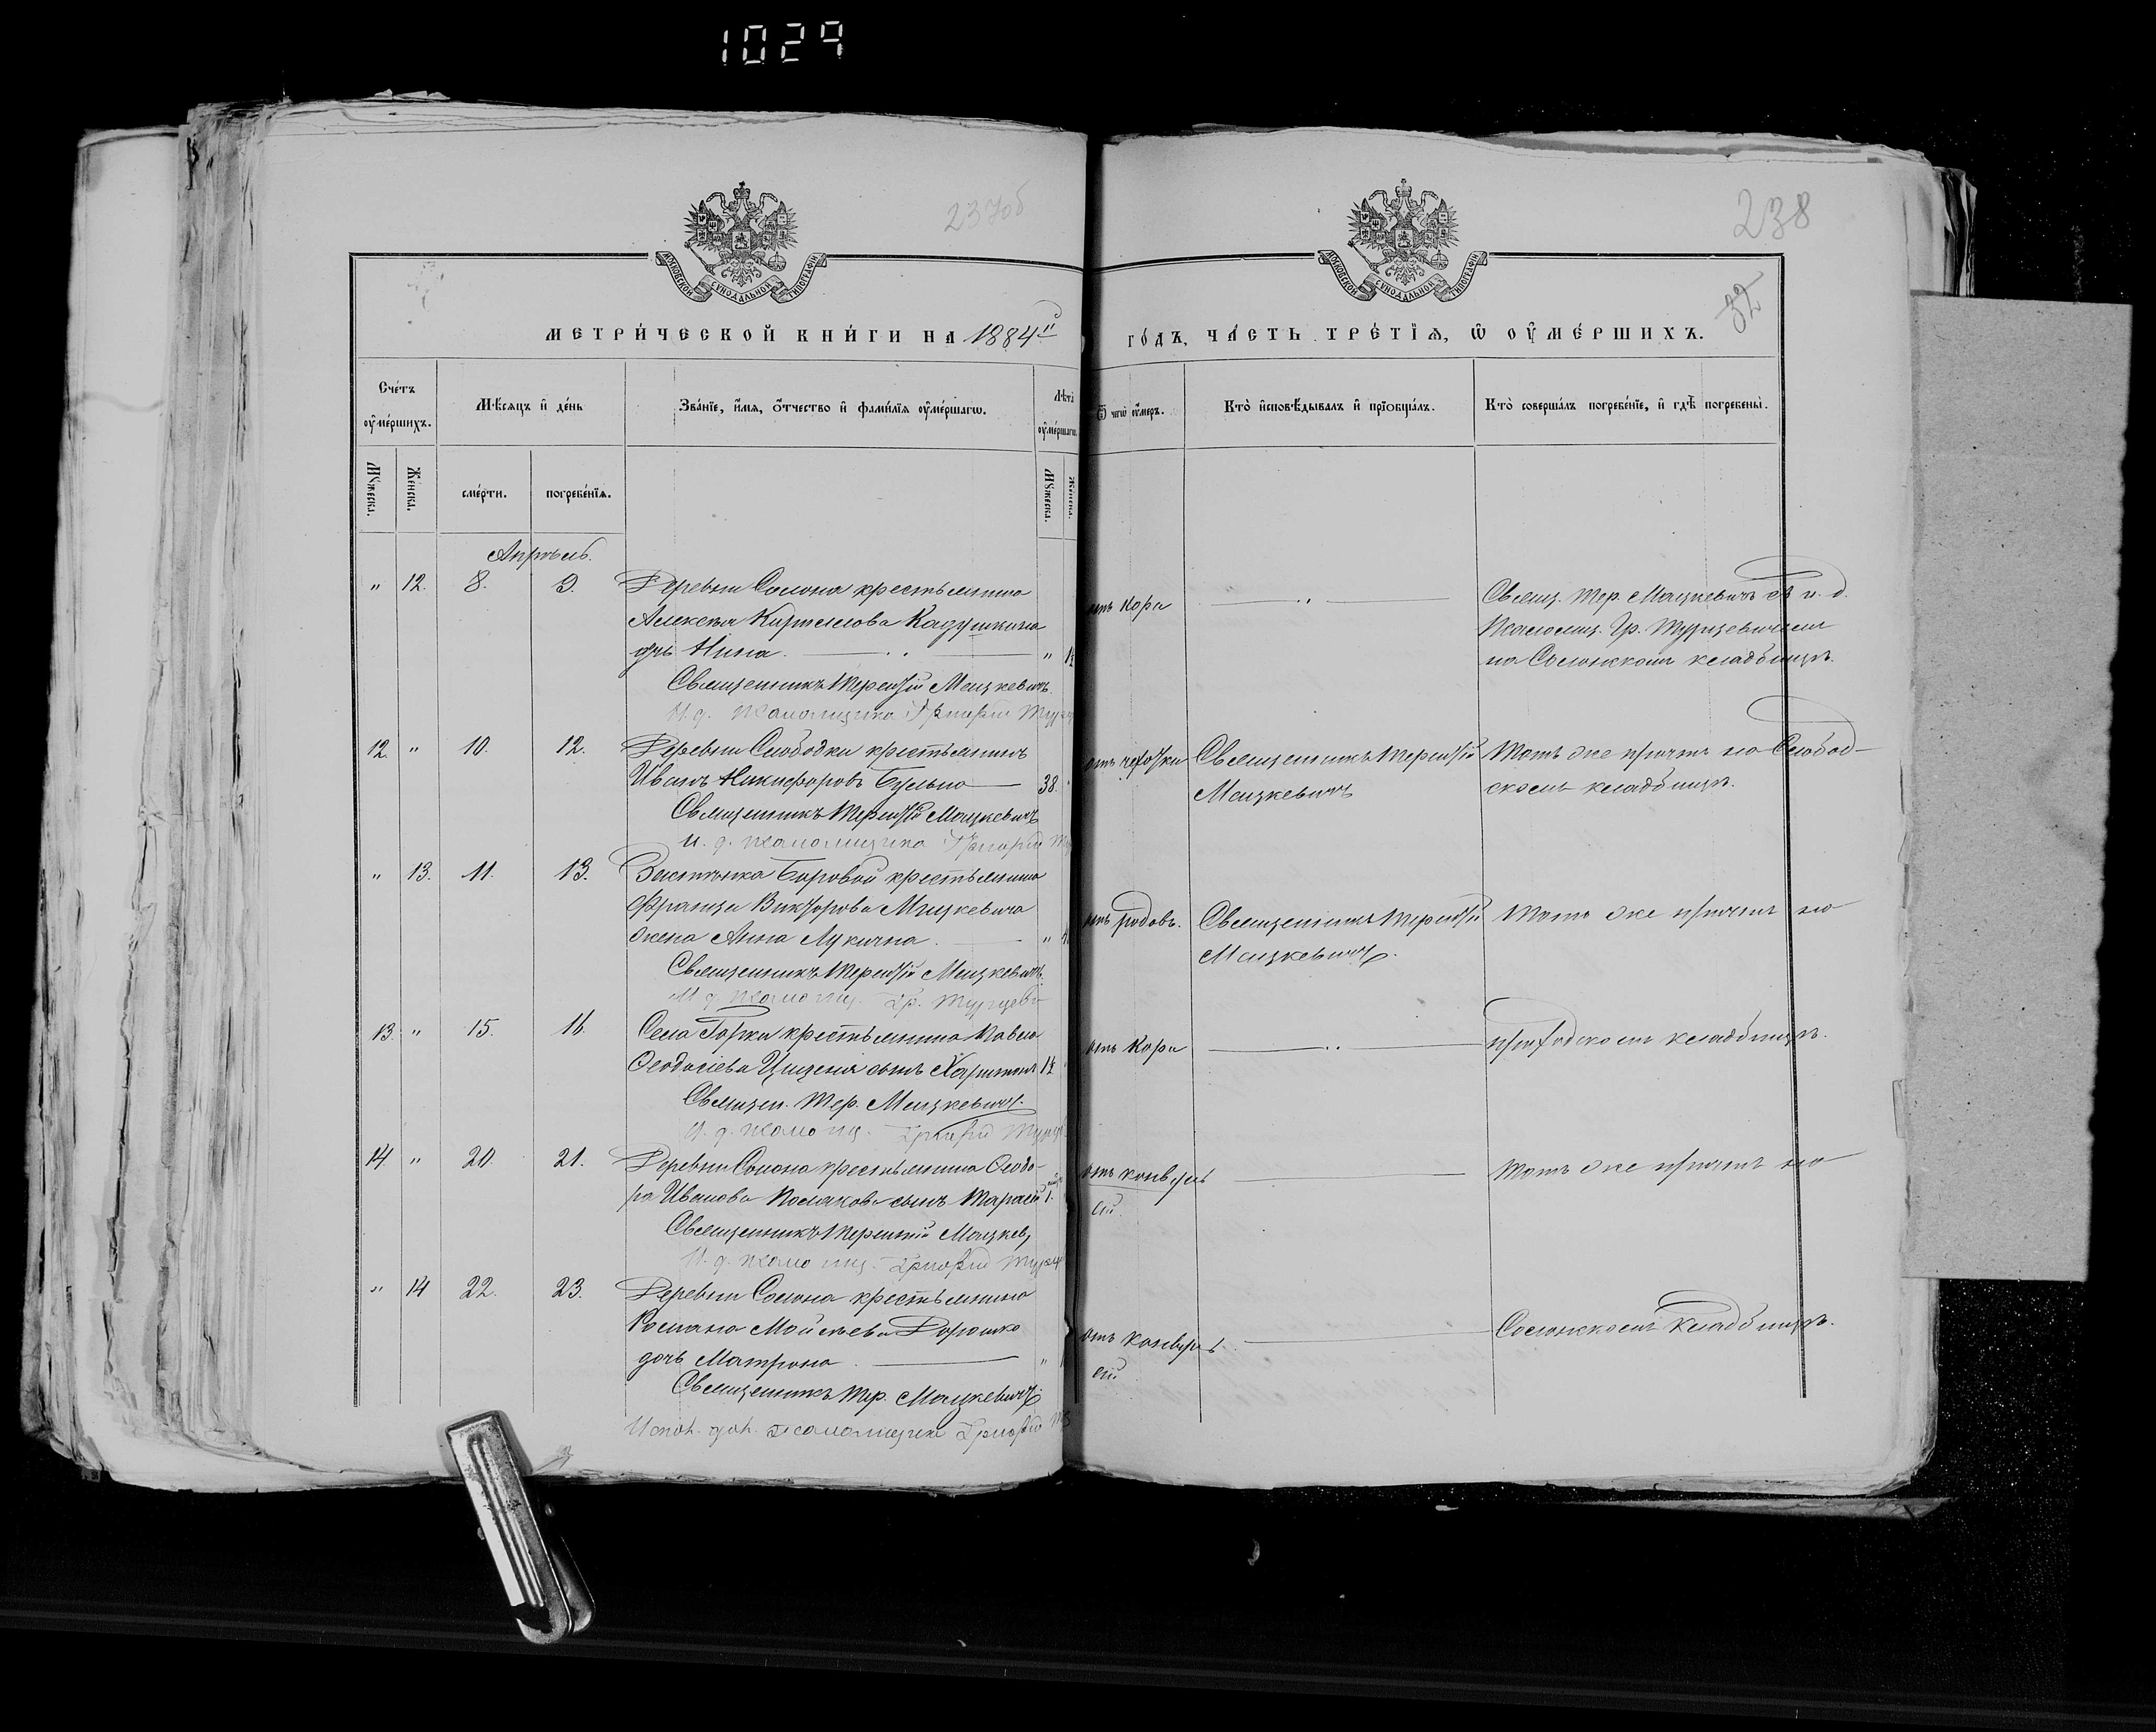 1029
237об
238
32
МОСКОВСКОЙ СѴНОДАЛЬНОЙ ТИПОГРАФІИ
МОСКОВСКОЙ СѴНОДАЛЬНОЙ ТИПОГРАФІИ
МЕТРИ́ЧЕСКОЙ КНИ́ГИ НА 1884й
ГО́ДЪ, ЧА́СТЬ ТРЕ́ТЇѦ, Ѡ ОУМЕ́РШИХЪ.
Сче́тъ оуме́ршихъ.
Мѣсяцъ и де́нь
Зва́нїе, и́мя, о́тчество и фами́лїя оуме́ршагѡ.
Лѣта оуме́ршагѡ.
Ѿ чегѡ оумеръ.
Кто̀ исповѣдывалъ и прїобща́лъ.
Кто̀ соверша́лъ погребе́нїе, и гдѣ погребены̀.
Мужеска.
Женска.
сме́рти.
погребе́нїя.
Мужеска.
Женска.
Апрѣль.
" 12. 8. 9. Деревни Солона крестьянина
Алексѣя Кириллова
дчь Нина. "
Священникъ Терентій Мацкевичъ
И. д. псаломщика Григорій
отъ кори
Свящ. Тер. Мацкевичъ съ и. д.
Псаломщ. Гр. Турцевичемъ
на Солонскомъ кладбищѣ.
12. " 10. 12. Деревни Слободки крестьянинъ
Иванъ Никифоровъ 38.
Священникъ Терентій Мацкевичъ
И. д. псаломщика Григорій
отъ чахотки
Священникъ Терентій
Мацкевичъ
Тотъ же причтъ на Слобод-
скомъ кладбищѣ.
" 13. 11. 13. Застѣнка Боровой крестьянина
Франца Викторова Мицкевича
жена Анна Лукична. "
Священникъ Терентій Мацкевичъ
И. д. псаломщ. Гр. Турцеви
отъ родовъ.
Священникъ Терентій
Мацкевичъ.
Тотъ же причтъ на
13. " 15. 16. Села Горки крестьянина Павла
Ѳеодосіева сынъ Харитонъ
Священ. Тер. Мацкевичъ.
И. д. псаломщ. Григорій
отъ кори
приходскомъ кладбищѣ.
14 " 20. 21. Деревни Солона крестьянина Ѳеодо-
ра Иванова Полякова сынъ Тарасій 1.
Священникъ Терентій Мацкев
И. д. псаломщ. Григорій
отъ конвуль
сій.
Тотъ же причтъ на
" 14 22. 23. Деревни Солона крестьянина
Романа Моисеева Дорошко
дочь Матрона. "
Священникъ Тер. Мацкевичъ
Испол. дол. псаломщика Григорій
отъ конвуль
сій
Солонскомъ кладбищѣ.